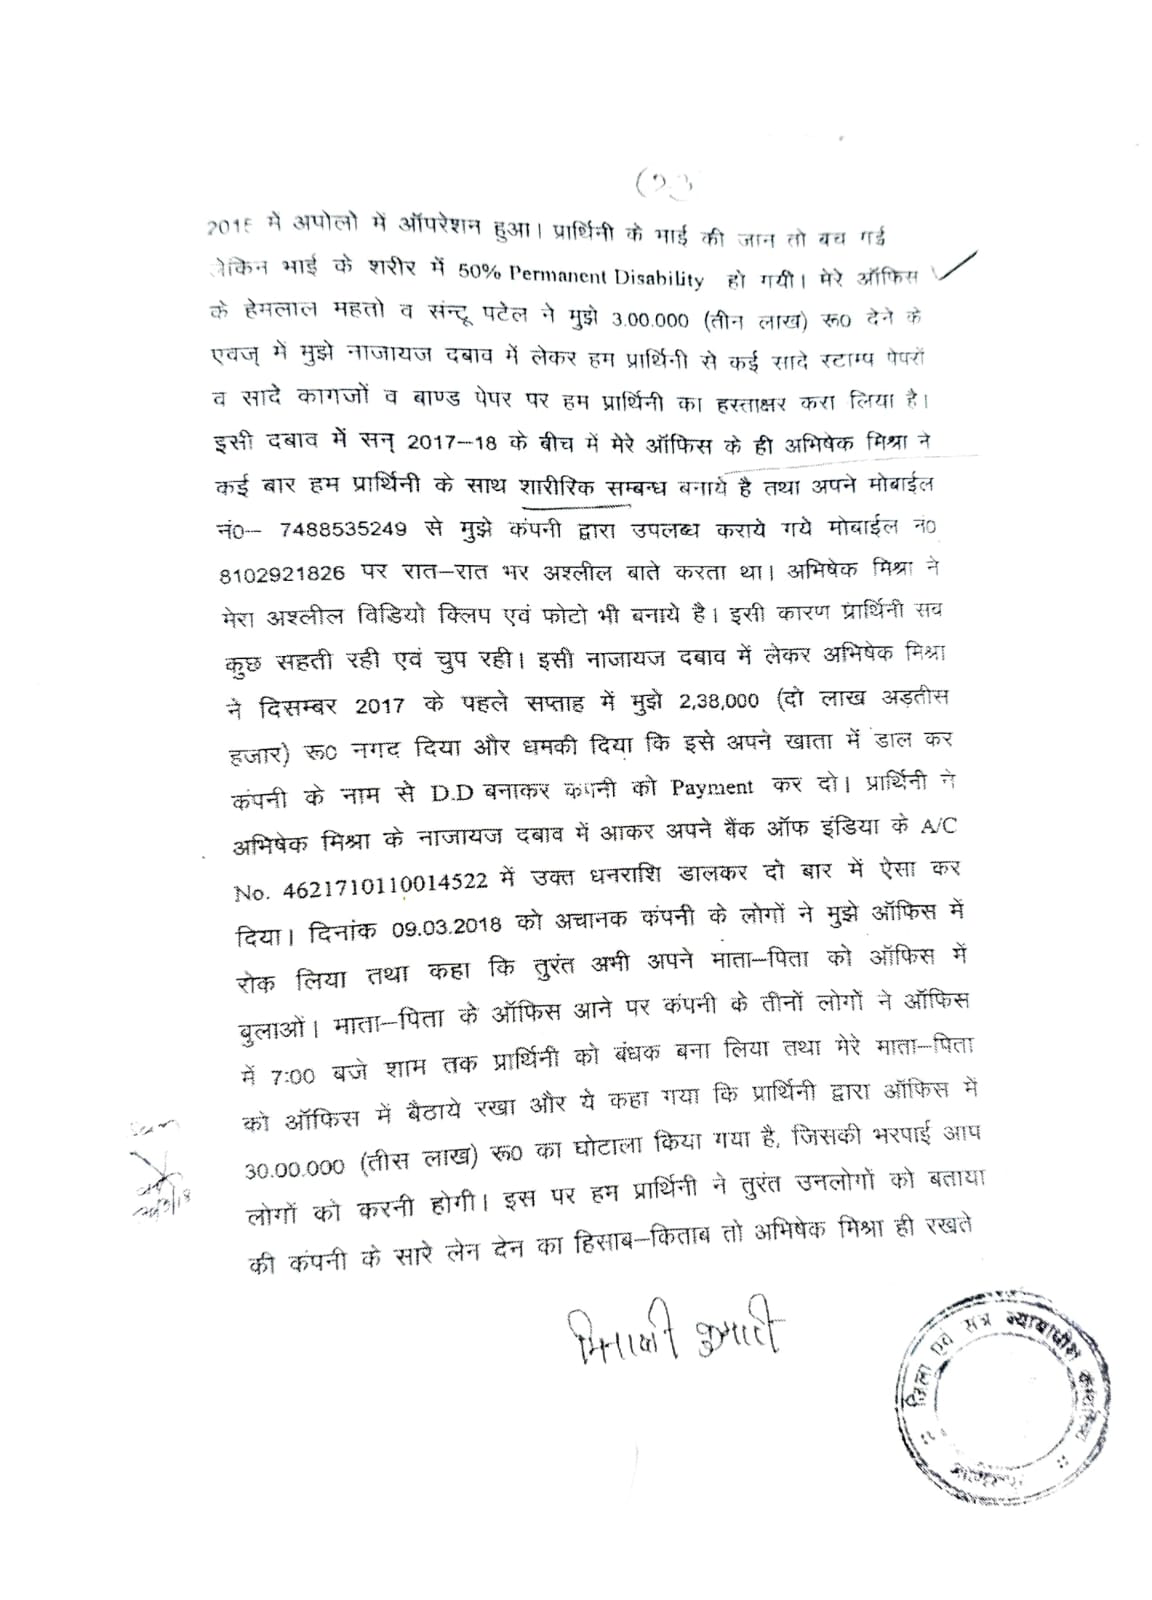 2015 मे अपोलो में ऑपरेशन हुआ। प्रार्थिनी के भाई की जान तो बच गई
लेकिन भाई के शरीर में 50% Permanent Disability हो गयी। मेरे ऑफिस
के हेमलाल महतो व संन्टू पटेल ने मुझे 3.00.000 (तीन लाख) रू0 देने के
एवज् में मुझे नाजायज दबाव में लेकर हम प्रार्थिनी से कई सादे स्टाम्प पेपरों
व सादे कागजों व बाण्ड पेपर पर हम प्रार्थिनी का हस्ताक्षर करा लिया है।
इसी दबाव में सन् 2017–18 के बीच में मेरे ऑफिस के ही अभिषेक मिश्रा ने
कई बार हम प्रार्थिनी के साथ शारीरिक सम्बन्ध बनाये है तथा अपने मोबाईल
नं0– 7488535249 से मुझे कंपनी द्वारा उपलब्ध कराये गये मोबाईल नं0
8102921826 पर रात–रात भर अश्लील बाते करता था। अभिषेक मिश्रा ने
मेरा अश्लील विडियो क्लिप एवं फोटो भी बनाये है। इसी कारण प्रार्थिनी सब
कुछ सहती रही एवं चुप रही। इसी नाजायज दबाव में लेकर अभिषेक मिश्रा
ने दिसम्बर 2017 के पहले सप्ताह में मुझे 2,38,000 (दो लाख अड़तीस
हजार) रू0 नगद दिया और धमकी दिया कि इसे अपने खाता में डाल कर
कंपनी के नाम से D.D बनाकर कंपनी को Payment कर दो। प्रार्थिनी ने
अभिषेक मिश्रा के नाजायज दबाव में आकर अपने बैंक ऑफ इंडिया के A/C
No. 4621710110014522 में उक्त धनराशि डालकर दो बार में ऐसा कर
दिया। दिनांक 09.03.2018 को अचानक कंपनी के लोगों ने मुझे ऑफिस में
रोक लिया तथा कहा कि तुरंत अभी अपने माता–पिता को ऑफिस में
बुलाओं। माता–पिता के ऑफिस आने पर कंपनी के तीनों लोगों ने ऑफिस
में 7:00 बजे शाम तक प्रार्थिनी को बंधक बना लिया तथा मेरे माता–पिता
को ऑफिस में बैठाये रखा और ये कहा गया कि प्रार्थिनी द्वारा ऑफिस में
30.00.000 (तीस लाख) रू0 का घोटाला किया गया है, जिसकी भरपाई आप
लोगों को करनी होगी। इस पर हम प्रार्थिनी ने तुरंत उनलोगों को बताया
की कंपनी के सारे लेन देन का हिसाब–किताब तो अभिषेक मिश्रा ही रखते
मिनाक्षी कुमारी
जिला एवं सत्र न्यायाधीश